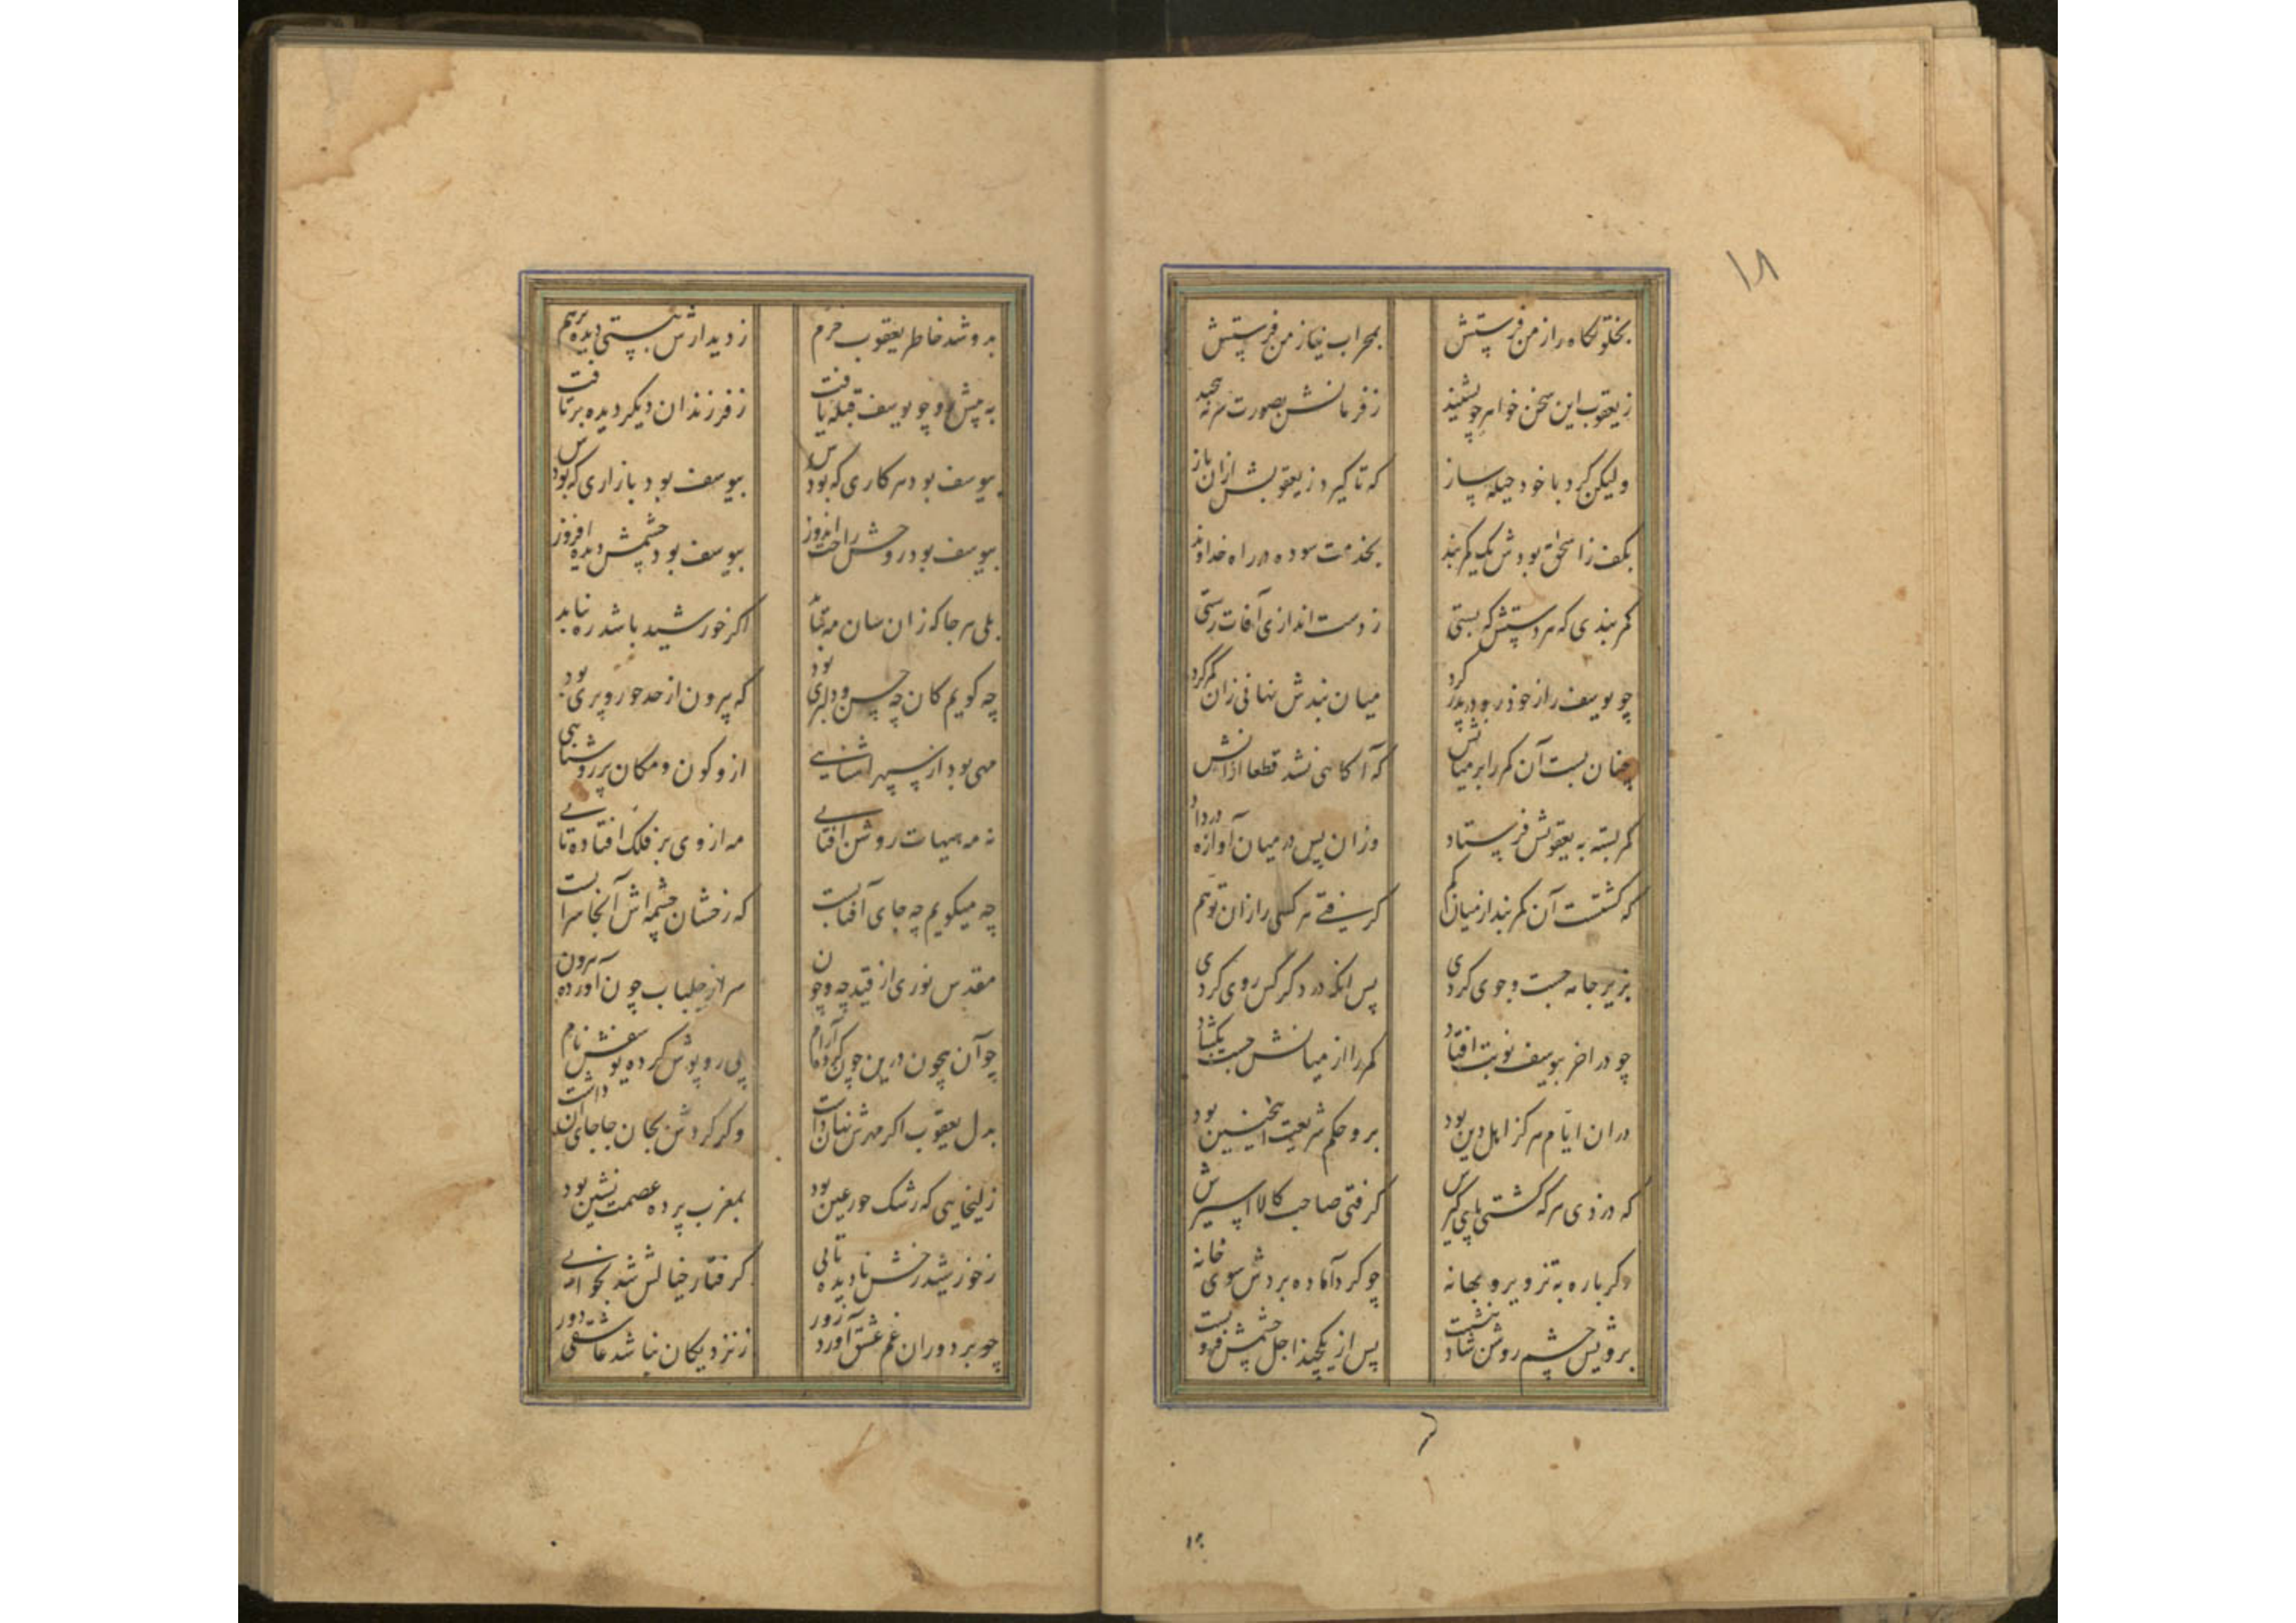 ۱۸
بخلوتگاه راز من فرستش بمحراب نیاز من فرستش
ز یعقوب این سخن خواهر چو بشنید ز فرمانش بصورت سر نپیچید
ولیکن کرد با خود حیله ساز که تا گیرد ز یعقوبش ازان باز
بکف ز اسحق بودش یک کمربند بخدمت سوده در راه خداوند
کمربندی که هر دستش که بستی ز دست اندازی آفات رستی
چو یوسف را ز خود رو در پدر کرد میان بندش نهانی زان کمر کرد
چنان بست آن کمر را بر میانش که آگاهی نشد قطعا ازانش
کمر بسته به یعقوبش فرستاد وزان پس در میان آوازه در داد
که گشتست آن کمربند از میان گم گرفتی هر کسی را زان توهم
بزیر جامه جست و جوی کردی پس انگه در دگر کس روی کردی
چو در آخر بیوسف نوبت افتاد کمر را از میانش جست بگشاد
دران ایام هر کز اهل دین بود برو حکم شریعت اینچنین بود
که دزدی هر که گشتی پای گیرش گرفتی صاحب کالا اسیرش
دگر باره به تزویر و بهانه چو کرد آماده بردش سوی خانه
برویش چشم روشن شاد بنشست پس از یکچند اجل چشمش فروبست
بدو شد خاطر یعقوب خرم ز دیدارش نبستی دیده برهم
به پیش رو چو یوسف قبله یافت ز فرزندان دیگر دیده برتافت
بیوسف بود هر کاری که بودش بیوسف بود بازاری که بودش
بیوسف بود روحش راحت اندوز بیوسف بود چشمش دیده افروز
بلی هر جا کزان سان مه بتابد اگر خورشید باشد ره نیابد
چه گویم کان چه حسن و دلبری بود که بیرون از حد حور و پری بود
مهی بود از سپهر آشنایی ازو کون و مکان پر روشنایی
نه مه هیهات روشن آفتابی مه از وی بر فلک افتاده تابی
چه میگویم چه جای آفتابست که رخشان چشمه اش آنجا سرابست
مقدس نوری از قید چه و چون سر از جلباب چون آورده بیرون
چو آن بیچون درین چون کرده آرام پی روپوش کرده یوسفش نام
بدل یعقوب اگر مهرش نهان داشت وگر کردش بجان جا جای آن داشت
زلیخایی که رشک حور عین بود بمغرب پرده عصمت نشین بود
ز خورشید رخش نادیده تابی گرفتار خیالش شد بخوابی
چو بر دوران غم عشق آورد زور ز نزدیکان نباشد عاشقی دور